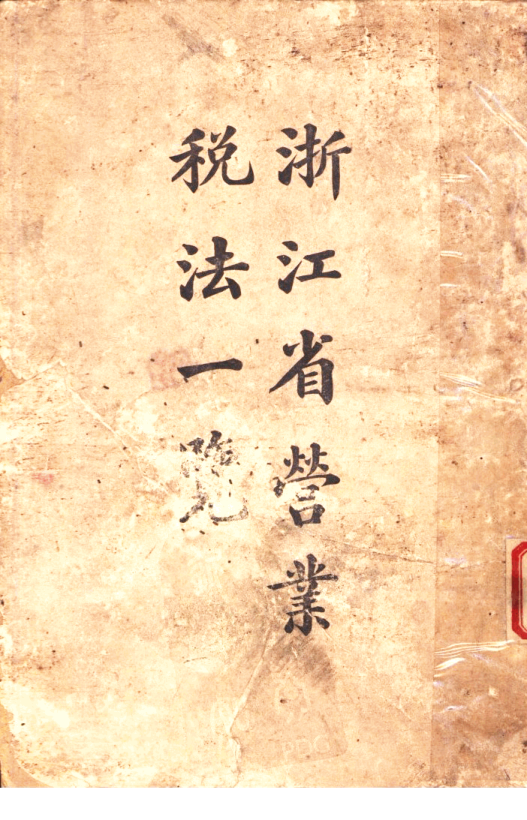 浙江省營業
税法一覽